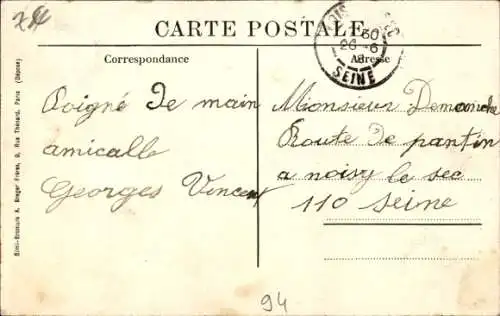 CARTE POSTALE
Correspondance
Adresse
SEINE
Poigné de main
amicalle
Georges Vincent
Monsieur Demanche
Route de pantin
a noisy le sec
110 Seine
Simi-Bromure A. Breger Frères, 9, Rue Thénard, Paris (Déposé)
94